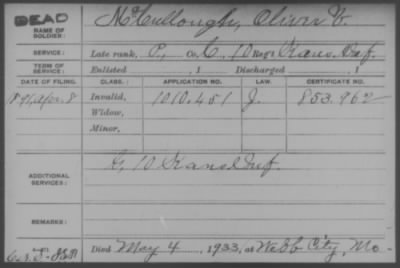 DEAD
NAME OF SOLDIER: McCullough, Oliver V.
SERVICE: Late rank, P., Co. C, 10 Reg't Kans. Inf.
TERM OF SERVICE: Enlisted , 1 Discharged , 1
DATE OF FILING. CLASS. APPLICATION NO. LAW. CERTIFICATE NO.
1891, Apr. 8 Invalid, 1010.451 J. 853.962
Widow,
Minor,
ADDITIONAL SERVICES: G, 10 Kans. Inf.
REMARKS:
Died May 4, 1933, at Webb City, Mo.